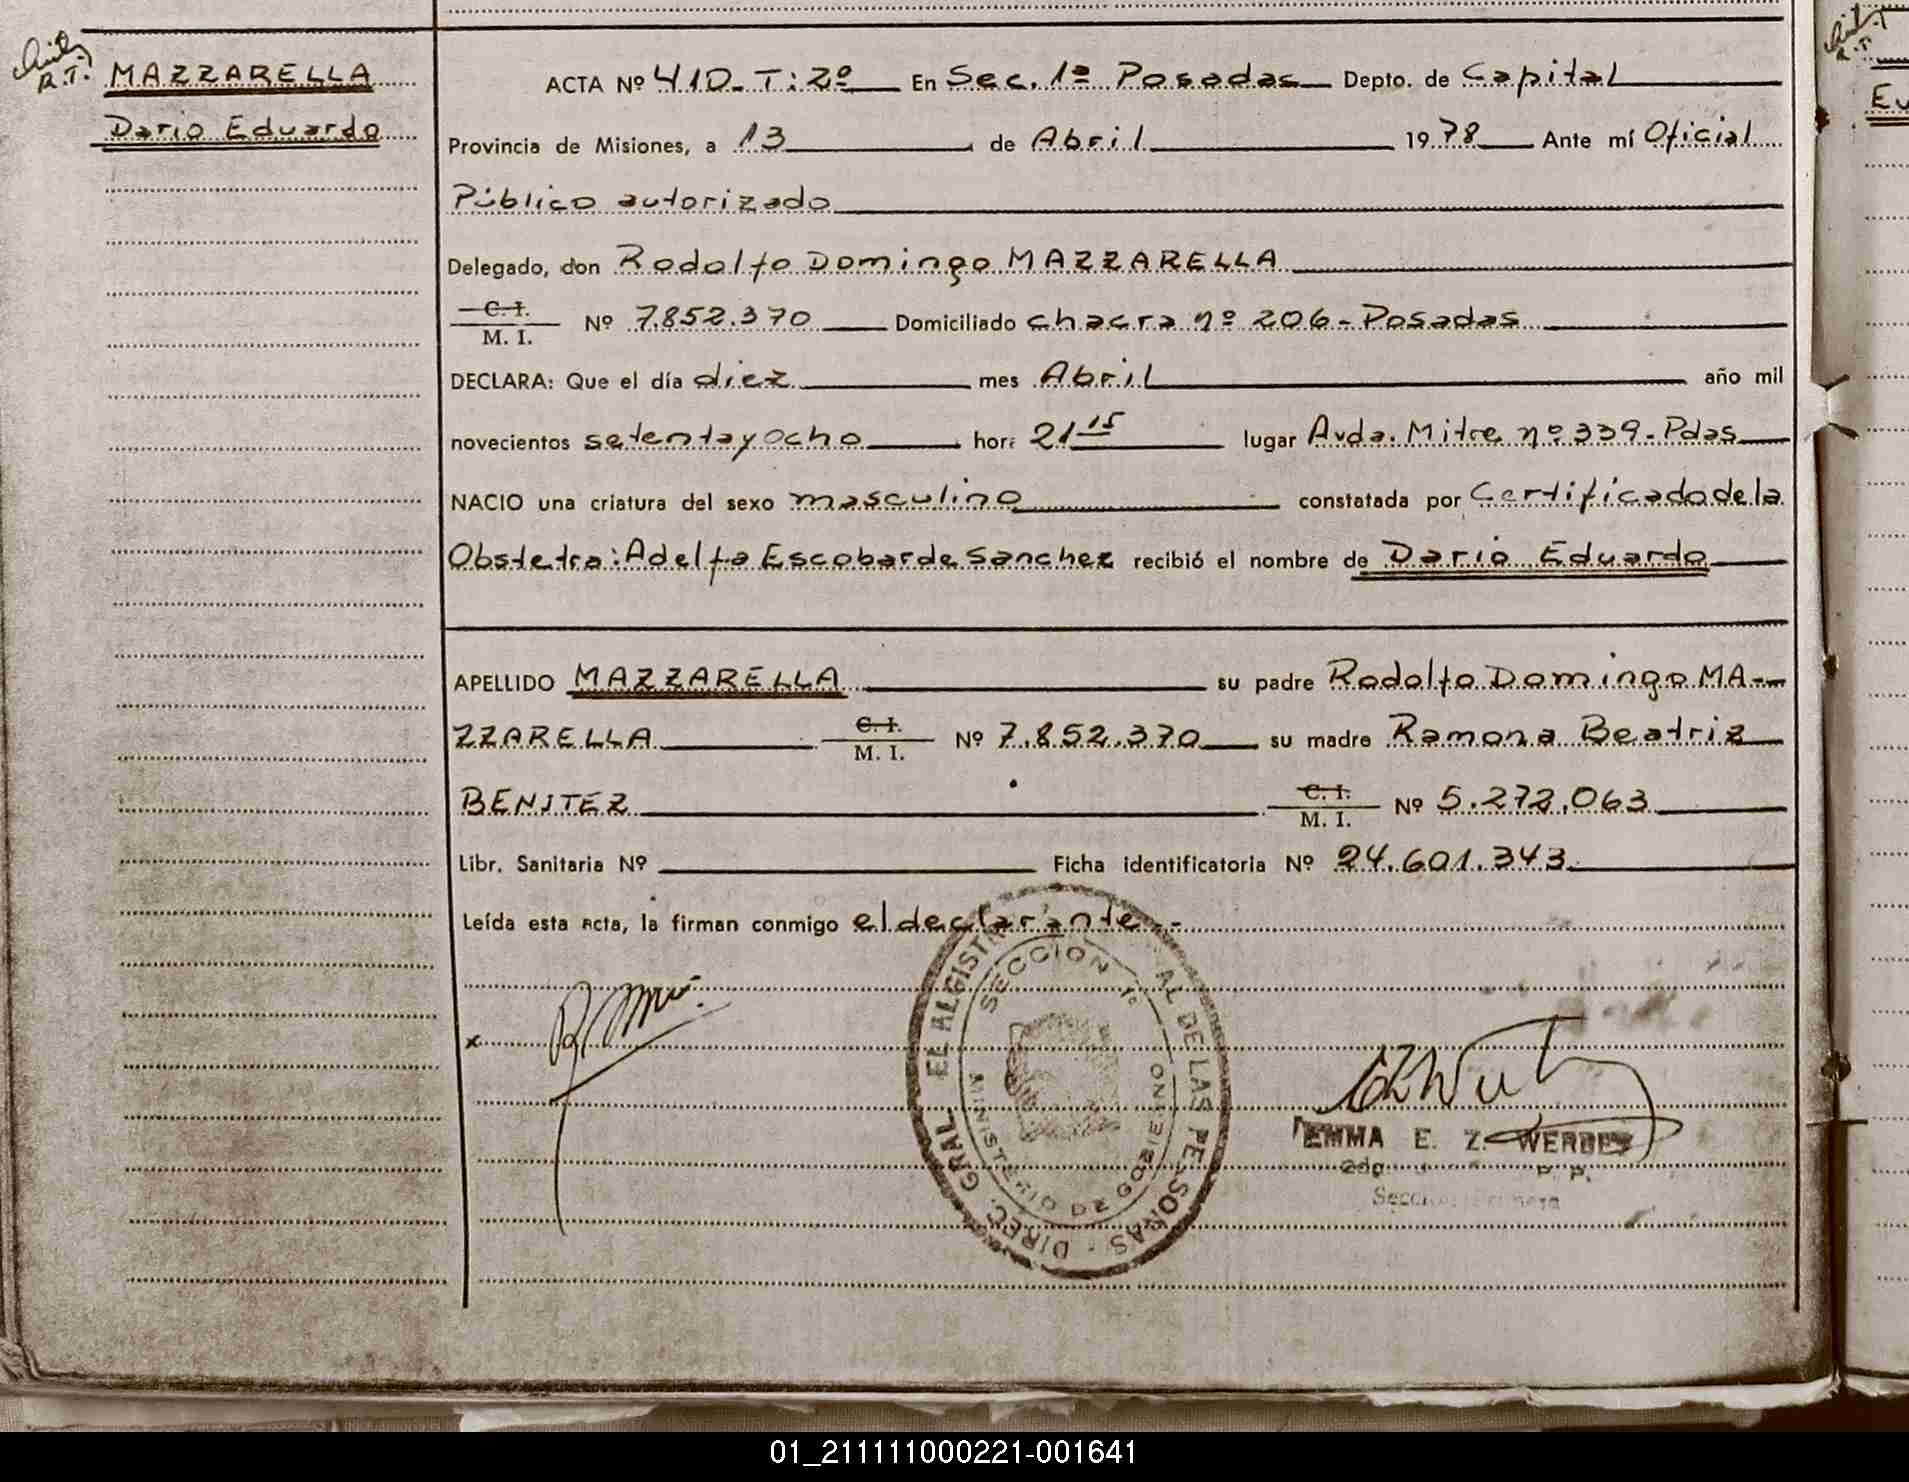 R.T.
MAZZARELLA
Dario Eduardo
ACTA Nº 410- T: 2º En Sec. 1ª Posadas Depto. de Capital
Provincia de Misiones, a 13 de Abril 1978 Ante mí Oficial
Público autorizado
Delegado, don Rodolfo Domingo MAZZARELLA
C. I. / M. I. Nº 7.852.370 Domiciliado chacra nº 206-Posadas
DECLARA: Que el día diez mes Abril año mil
novecientos setentayocho hora 21 15 lugar Avda. Mitre nº 339-Pdas
NACIO una criatura del sexo masculino constatada por Certificado de la
Obstetra: Adelfa Escobar de Sanchez recibió el nombre de Dario Eduardo
APELLIDO MAZZARELLA su padre Rodolfo Domingo MA-
ZZARELLA C. I. / M. I. Nº 7.852.370 su madre Ramona Beatriz
BENITEZ C. I. / M. I. Nº 5.272.063
Libr. Sanitaria Nº Ficha identificatoria Nº 24.601.343
Leída esta acta, la firman conmigo el declarante.-
x
SECCION 1º
MINISTERIO DE GOBIERNO
DIREC. GRAL. DE LAS PERSONAS
EMMA E. Z. WERBES
Sección Primera
R.T.
Eu
01_211111000221-001641